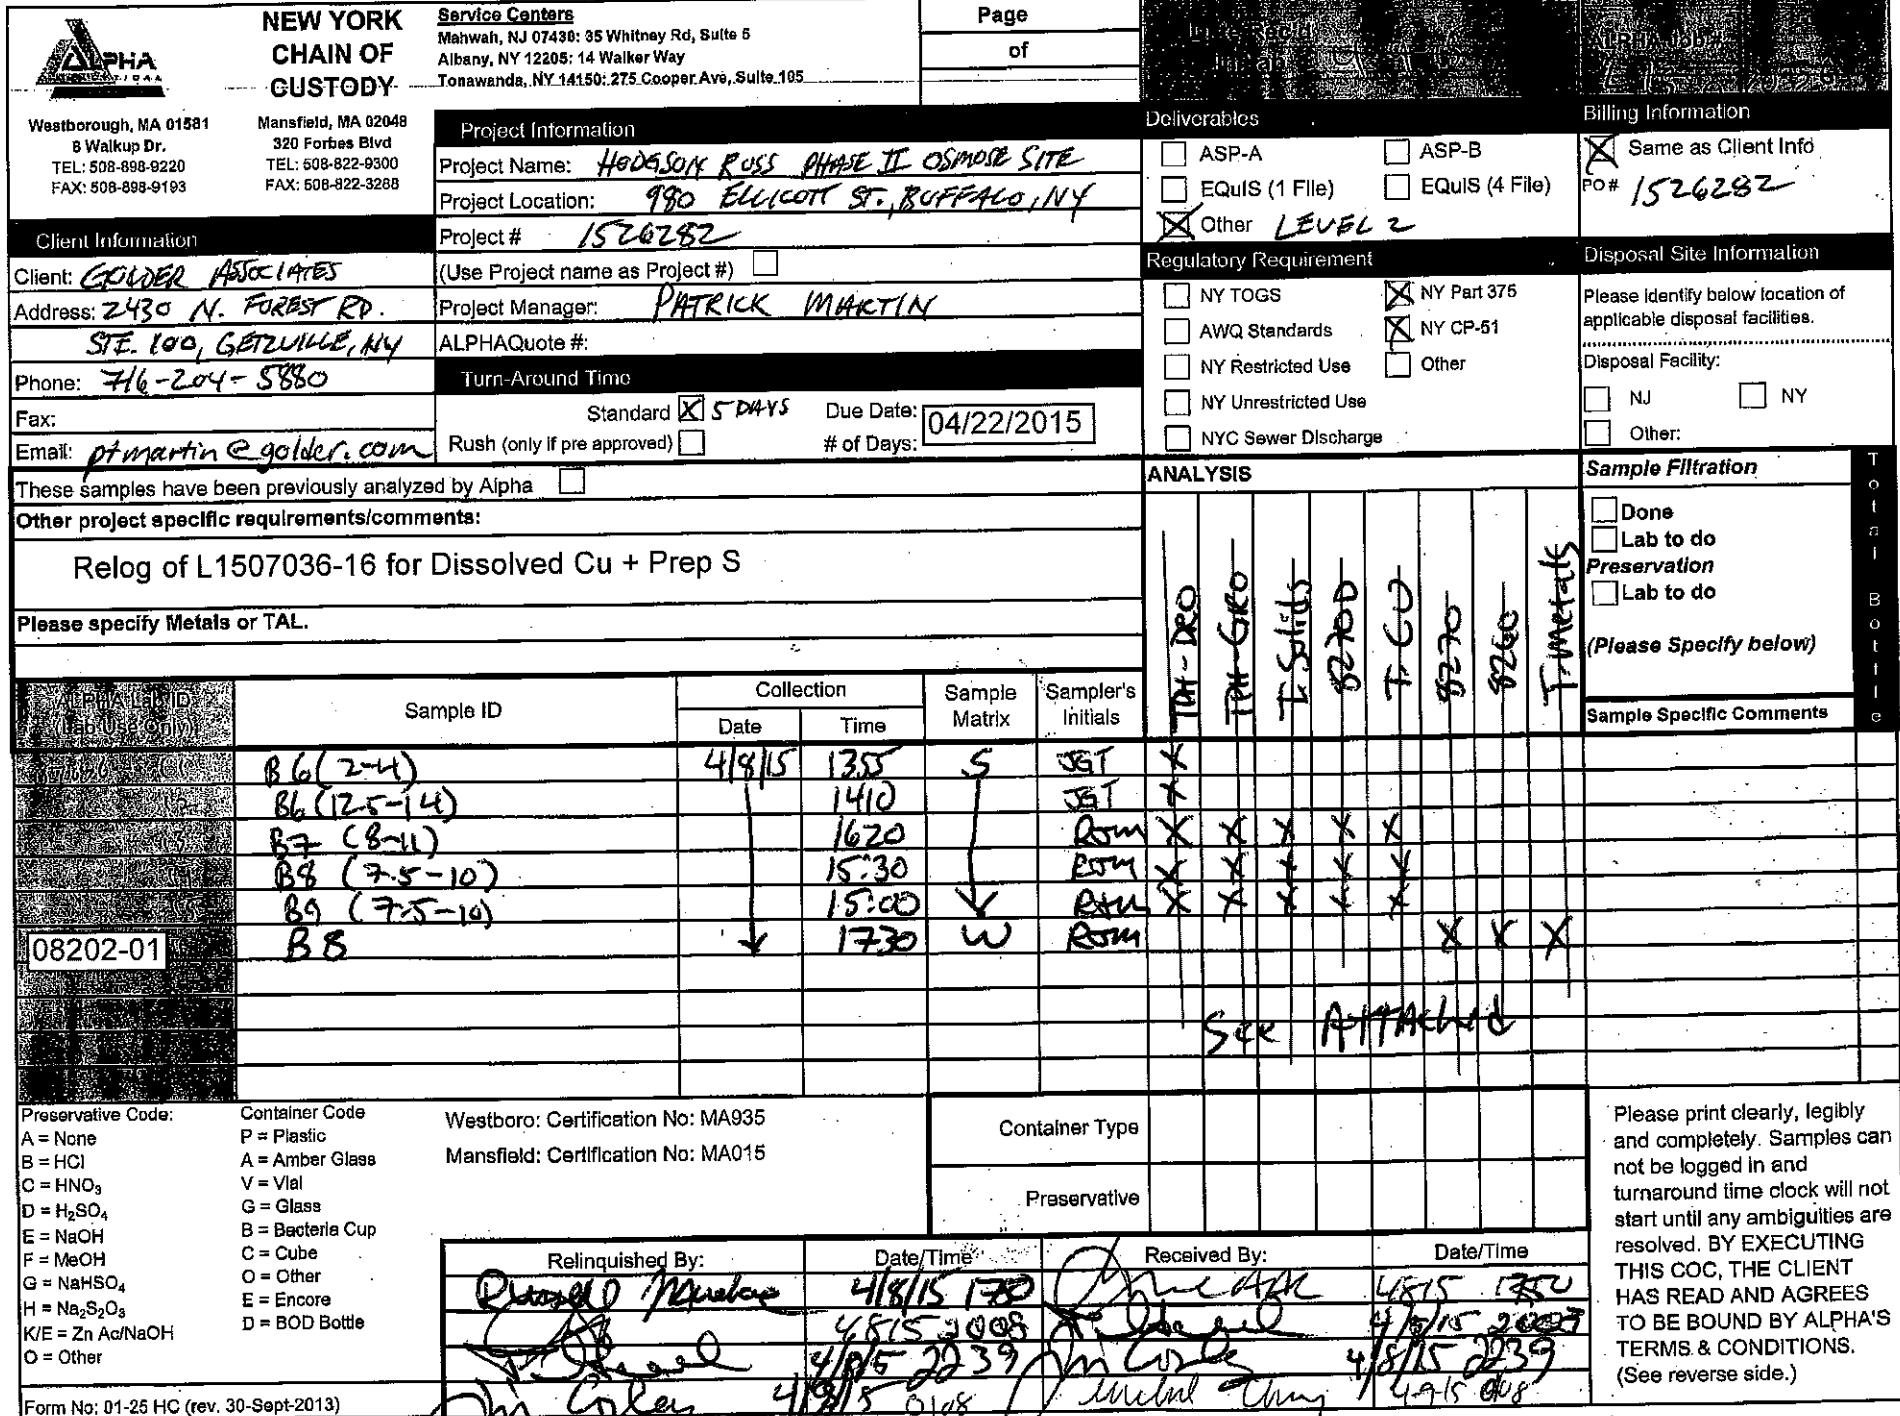 ALPHA
NEW YORK
CHAIN OF
CUSTODY
Service Centers
Mahwah, NJ 07430: 35 Whitney Rd, Suite 5
Albany, NY 12205: 14 Walker Way
Tonawanda, NY 14150: 275 Cooper Ave, Suite 105
Page
of
Westborough, MA 01581
8 Walkup Dr.
TEL: 508-898-9220
FAX: 508-898-9193
Mansfield, MA 02048
320 Forbes Blvd
TEL: 508-822-9300
FAX: 508-822-3288
Project Information
Project Name: HODGSON RUSS PHASE II OSMOSE SITE
Project Location: 980 ELLICOTT ST., BUFFALO, NY
Project # 1526282
(Use Project name as Project #)
Project Manager: PATRICK MARTIN
ALPHAQuote #:
Client Information
Client: GOLDER ASSOCIATES
Address: 2430 N. FOREST RD.
STE. 100, GETZVILLE, NY
Phone: 716-204-5880
Fax:
Email: ptmartin@golder.com
Turn-Around Time
Standard X 5 DAYS
Due Date: 04/22/2015
Rush (only if pre approved)
# of Days:
Deliverables
ASP-A
ASP-B
EQuIS (1 File)
EQuIS (4 File)
X Other LEVEL 2
Regulatory Requirement
NY TOGS
X NY Part 375
AWQ Standards
X NY CP-51
NY Restricted Use
Other
NY Unrestricted Use
NYC Sewer Discharge
Billing Information
X Same as Client Info
PO # 1526282
Disposal Site Information
Please identify below location of
applicable disposal facilities.
Disposal Facility:
NJ
NY
Other:
These samples have been previously analyzed by Alpha
Other project specific requirements/comments:
Relog of L1507036-16 for Dissolved Cu + Prep S
Please specify Metals or TAL.
ANALYSIS
TPH-DRO
TPH-GRO
T. Solids
8270D
T-CU
8270
8260
T. Metals
Sample Filtration
Done
Lab to do
Preservation
Lab to do
(Please Specify below)
Total Bottle
ALPHA Lab ID
(Lab Use Only)
Sample ID
Collection
Date
Time
Sample
Matrix
Sampler's
Initials
Sample Specific Comments
B6 (2-4) 4/8/15 1355 S JGT X
B6 (12.5-14) 1410 JGT X
B7 (8-11) 1620 RJM X X X X X
B8 (7.5-10) 15:30 RJM X X X X X
B9 (7.5-10) 15:00 RJM X X X X X
08202-01 B8 1730 W RJM X X X
See Attached
Preservative Code:
A = None
B = HCl
C = HNO3
D = H2SO4
E = NaOH
F = MeOH
G = NaHSO4
H = Na2S2O3
K/E = Zn Ac/NaOH
O = Other
Container Code
P = Plastic
A = Amber Glass
V = Vial
G = Glass
B = Bacteria Cup
C = Cube
O = Other
E = Encore
D = BOD Bottle
Westboro: Certification No: MA935
Mansfield: Certification No: MA015
Container Type
Preservative
Relinquished By:
Date/Time
Received By:
Date/Time
4/8/15 1750
4815 1750
4815 2009
4/8/15 2009
4/8/15 2239
4/8/15 2239
4/9/15 0108
4-9-15 0108
Please print clearly, legibly
and completely. Samples can
not be logged in and
turnaround time clock will not
start until any ambiguities are
resolved. BY EXECUTING
THIS COC, THE CLIENT
HAS READ AND AGREES
TO BE BOUND BY ALPHA'S
TERMS & CONDITIONS.
(See reverse side.)
Form No: 01-25 HC (rev. 30-Sept-2013)